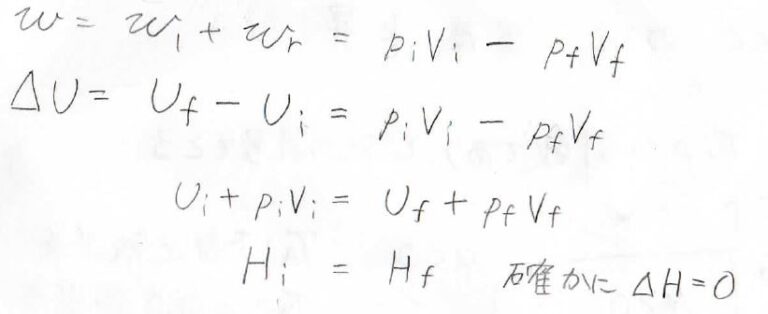 w = w₁ + wᵣ = pᵢVᵢ − p_fV_f
ΔU = U_f − Uᵢ = pᵢVᵢ − p_fV_f
Uᵢ + pᵢVᵢ = U_f + p_fV_f
Hᵢ = H_f 確かに ΔH = 0